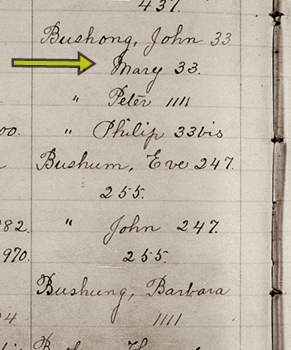 437.
Bushong, John 33
Mary 33.
" Peter 1111
00. " Philip 33bis
Bushum, Eve 247.
255.
282. " John 247.
970. 255.
Bushung, Barbara
4 1111